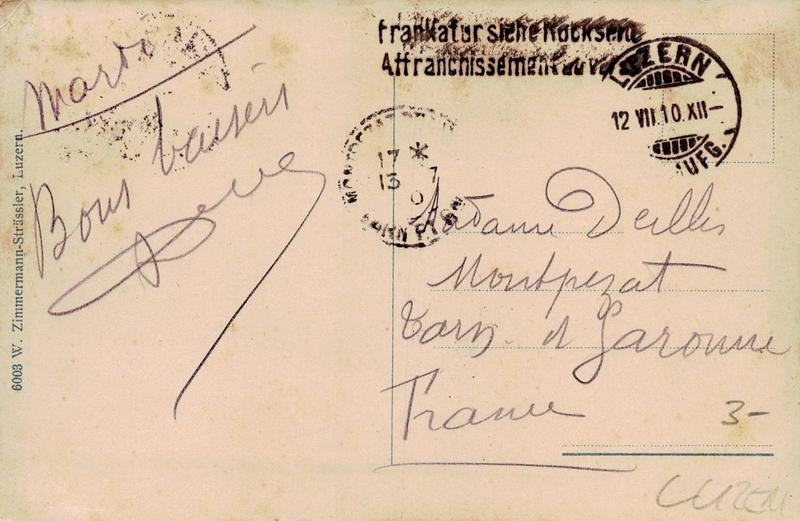 Mardi
Bons baisers
6003 W. Zimmermann-Strässler, Luzern.
Frankatur siehe Rückseite
Affranchissement au v
LUZERN
12 VII.10.XII-
AUFG.
17 *
13 7
Madame Deilles
Montpezat
Tarn et Garonne
France
3-
LUZERN